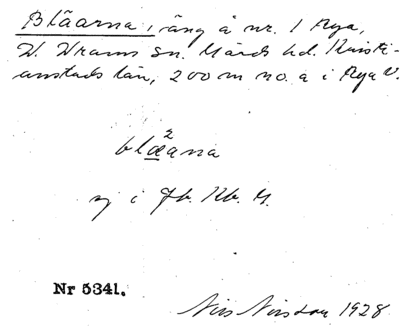 Blåarna, äng å nr. 1 Rya,
V. Vrams sn. Gärds hd. Kristi-
anstads län, 200 m no. a i Rya V.
2
blœana
ej i Jb. Rb. G.
Nr 5341.
Nils Nilsson 1928